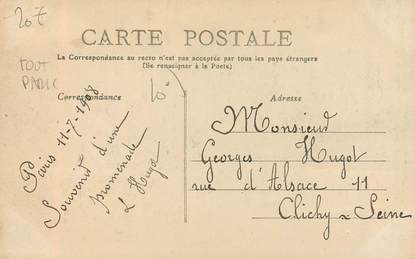 20€
TOUT
PARIS
CARTE POSTALE
La Correspondance au recto n'est pas acceptée par tous les pays étrangers
(Se renseigner à la Poste)
Correspondance
10-
Paris 11-7-1908
Souvenir d'une
promenade
L Hugot
Adresse
Monsieur
Georges Hugot
rue d'Alsace 11
Clichy s Seine